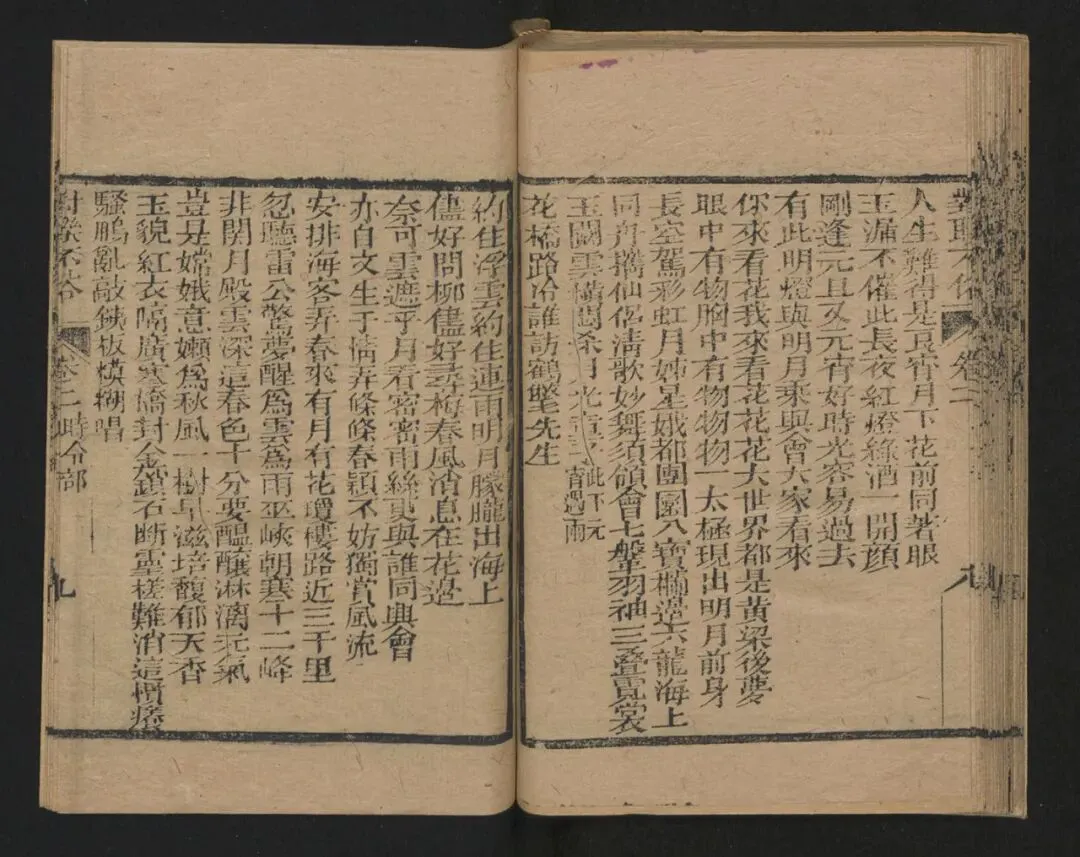 對聯不俗 卷二 八
人生難得是良宵月下花前同著眼
玉漏不催此長夜紅燈綠酒一開顏
剛逢元旦又元宵好時光容易過去
有此明燈與明月乘興會大家看來
你來看花我來看花花花大世界都是黃梁後夢
眼中有物胸中有物物物一太極現出明月前身
長空駕彩虹月姊星娥都團圞八寶欄邊六龍海上
同舟攜仙侶清歌妙舞須領會七盤羽袖三疊霓裳
玉闕雲橫問
此下元
宵遇雨
花橋路冷誰訪鶴墅先生
約住浮雲約住連雨明月朦朧出海上
儘好問柳儘好尋梅春風消息在花邊
奈可雲遮乎月看密密雨絲更與誰同興會
亦自文生于情弄條條春穎不妨獨賞風流
安排海客弄春來有月有花瓊樓路近三千里
忽聽雷公驚夢醒為雲為雨巫峽朝寒十二峰
非關月殿雲深這春色十分要醞釀淋漓元氣
豈是嫦娥意嬾為秋風一樹早滋培馥郁天香
玉貌紅衣隔廣寒橋對金鎖石斷靈槎難消這慣癢
騷鵬亂敲鐵板模糊唱
對聯不俗 卷二 時令部 九